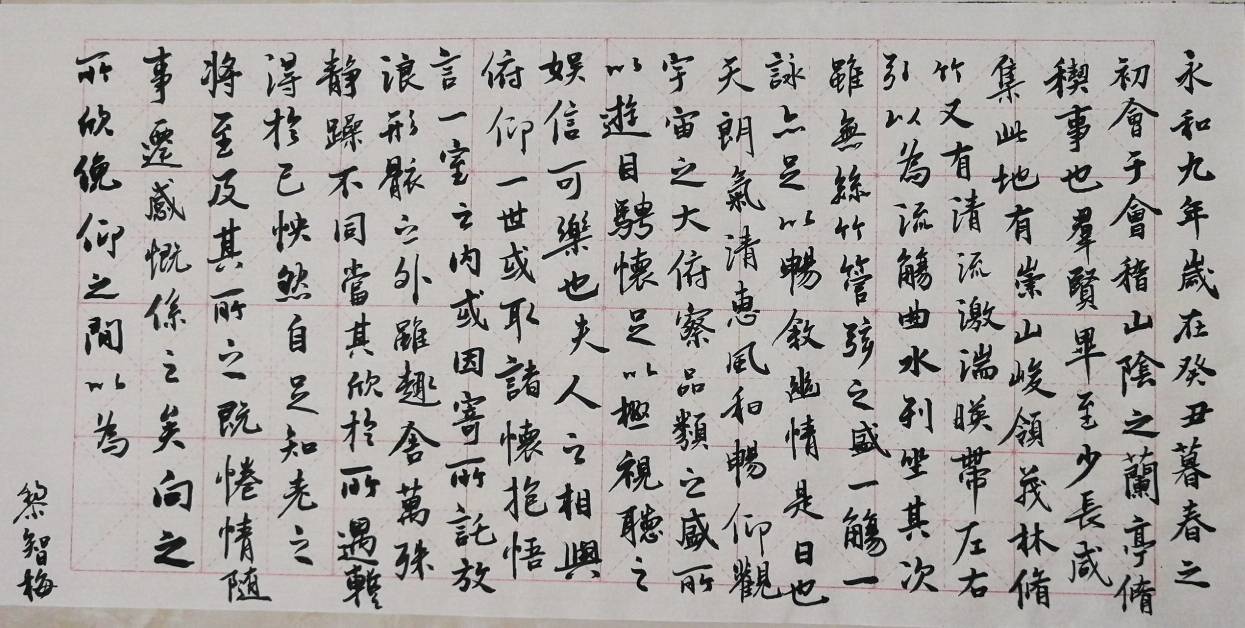 永和九年歲在癸丑暮春之
初會于會稽山陰之蘭亭脩
稧事也羣賢畢至少長咸
集此地有崇山峻領茂林脩
竹又有清流激湍暎帶左右
引以為流觴曲水列坐其次
雖無絲竹管弦之盛一觴一
詠亦足以暢敘幽情是日也
天朗氣清惠風和暢仰觀
宇宙之大俯察品類之盛所
以遊目騁懷足以極視聽之
娛信可樂也夫人之相與
俯仰一世或取諸懷抱悟
言一室之內或因寄所託放
浪形骸之外雖趣舍萬殊
靜躁不同當其欣於所遇蹔
得於己怏然自足不知老之
將至及其所之既惓情隨
事遷感慨係之矣向之
所欣俛仰之間以為
黎智梅